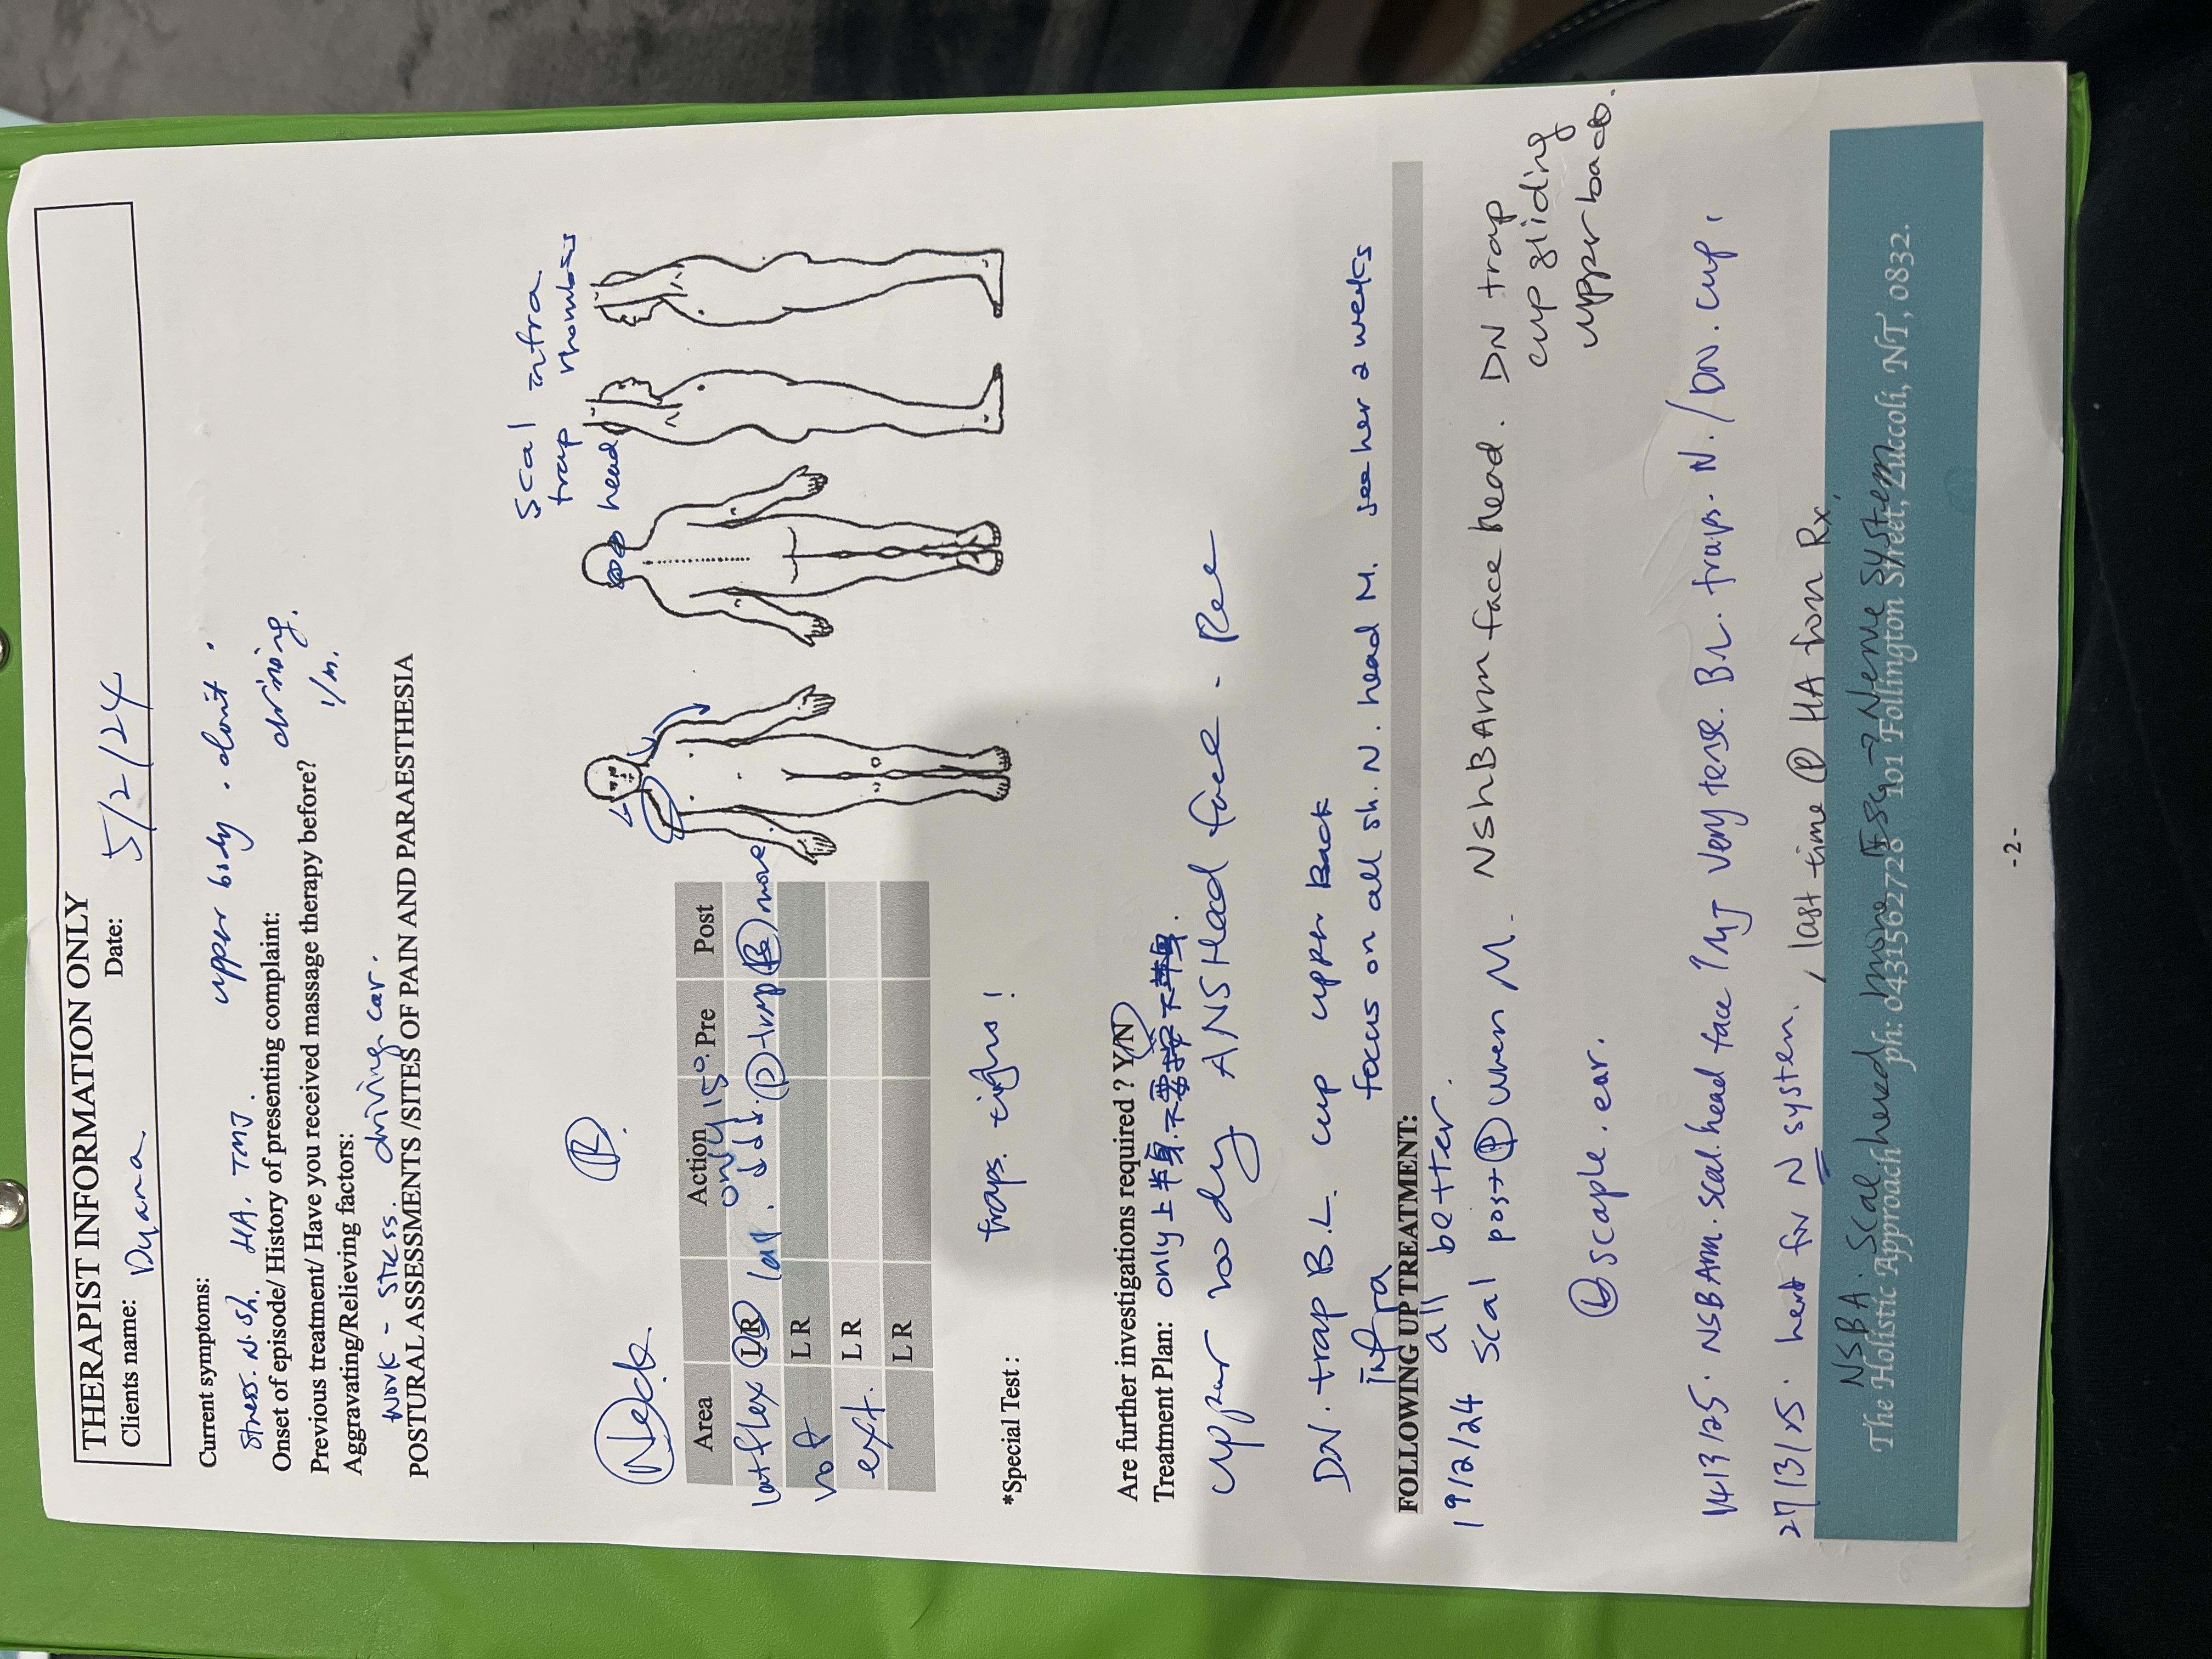 THERAPIST INFORMATION ONLY
Clients name: Dyana Date: 5/2/24
Current symptoms: upper body.
Stress. N. Sh. HA. TMJ.
Onset of episode/ History of presenting complaint: driving.
Previous treatment/ Have you received massage therapy before? 1/m.
Aggravating/Relieving factors:
work - stress. driving car.
POSTURAL ASSESSMENTS /SITES OF PAIN AND PARAESTHESIA
Scal infra
trap rhomboids
head
Neck R
Area Action Pre Post
only 15°.
lat flex L R move
rot L R
ext. L R
L R
*Special Test : traps. tight !
Are further investigations required ? Y/N
Treatment Plan: only 上半身.不要
upper body ANSHead face -
DN. trap B.L. cup upper back
infra focus on all sh. N. head M. see her 2 weeks
FOLLOWING UP TREATMENT:
all better.
19/2/24 Scal post P when M. NShBArm face head. DN trap
cup gliding
upper back.
ear.
14/3/25. NSBArm. Scal. head face TMJ Very tense. BL. traps. N./DN. cup.
27/3/25. here for N system. , last time P HA from Rx.
NSBA. Scal head more → Nerve system
The Holistic Approach ph: 0431562728 101 Follington Street, Zuccoli, NT, 0832.
-2-